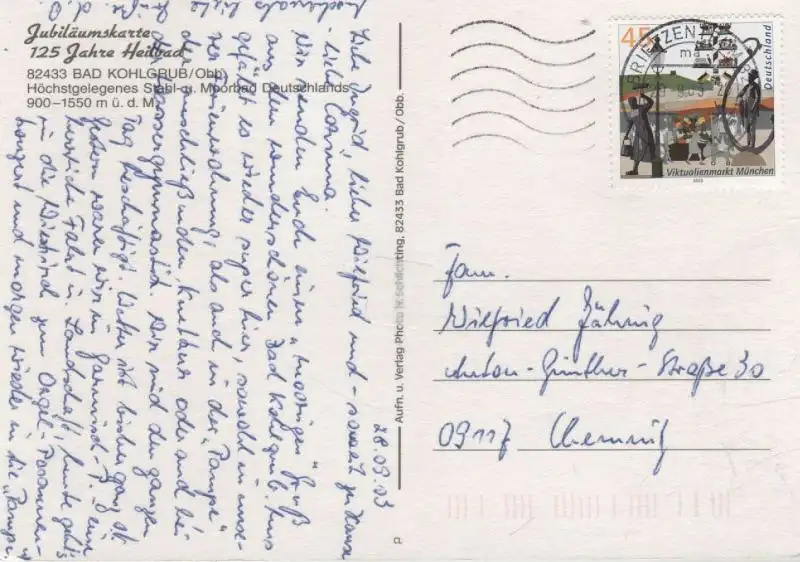 Jubiläumskarte
125 Jahre Heilbad
82433 BAD KOHLGRUB/Obb.
Höchstgelegenes Stahl- u. Moorbad Deutschlands
900–1550 m ü. d. M.
28.09.03
Liebe Ingrid, lieber Wilfried und – soweit zu Hause
– liebe Corinna.
Wir senden Euch einen „moorigen“ Gruß
aus dem wunderschönen Bad Kohlgrub. Uns
gefällt es wieder super hier, sowohl in unse-
rer Ferienwohnung, als auch in der „Pampe“
der anschließenden Kneippkur oder auch bei
der Wassergymnastik. Wir sind den ganzen
Tag beschäftigt. Wetter ist bisher ganz gut.
Gestern waren wir in Garmisch-P. – eine
herrliche Fahrt u. Landschaft, heute geht's
in die Wieskirch zum Orgel-Posaunen-
konzert und morgen wieder in die „Pampe“
Aufn. u. Verlag Photo H. Schlichting, 82433 Bad Kohlgrub/Obb.
45
Deutschland
Viktualienmarkt München
2003
BRIEFZENTRUM
Fam.
Wilfried Jähnig
Anton-Günther-Straße 30
09117 Chemnitz